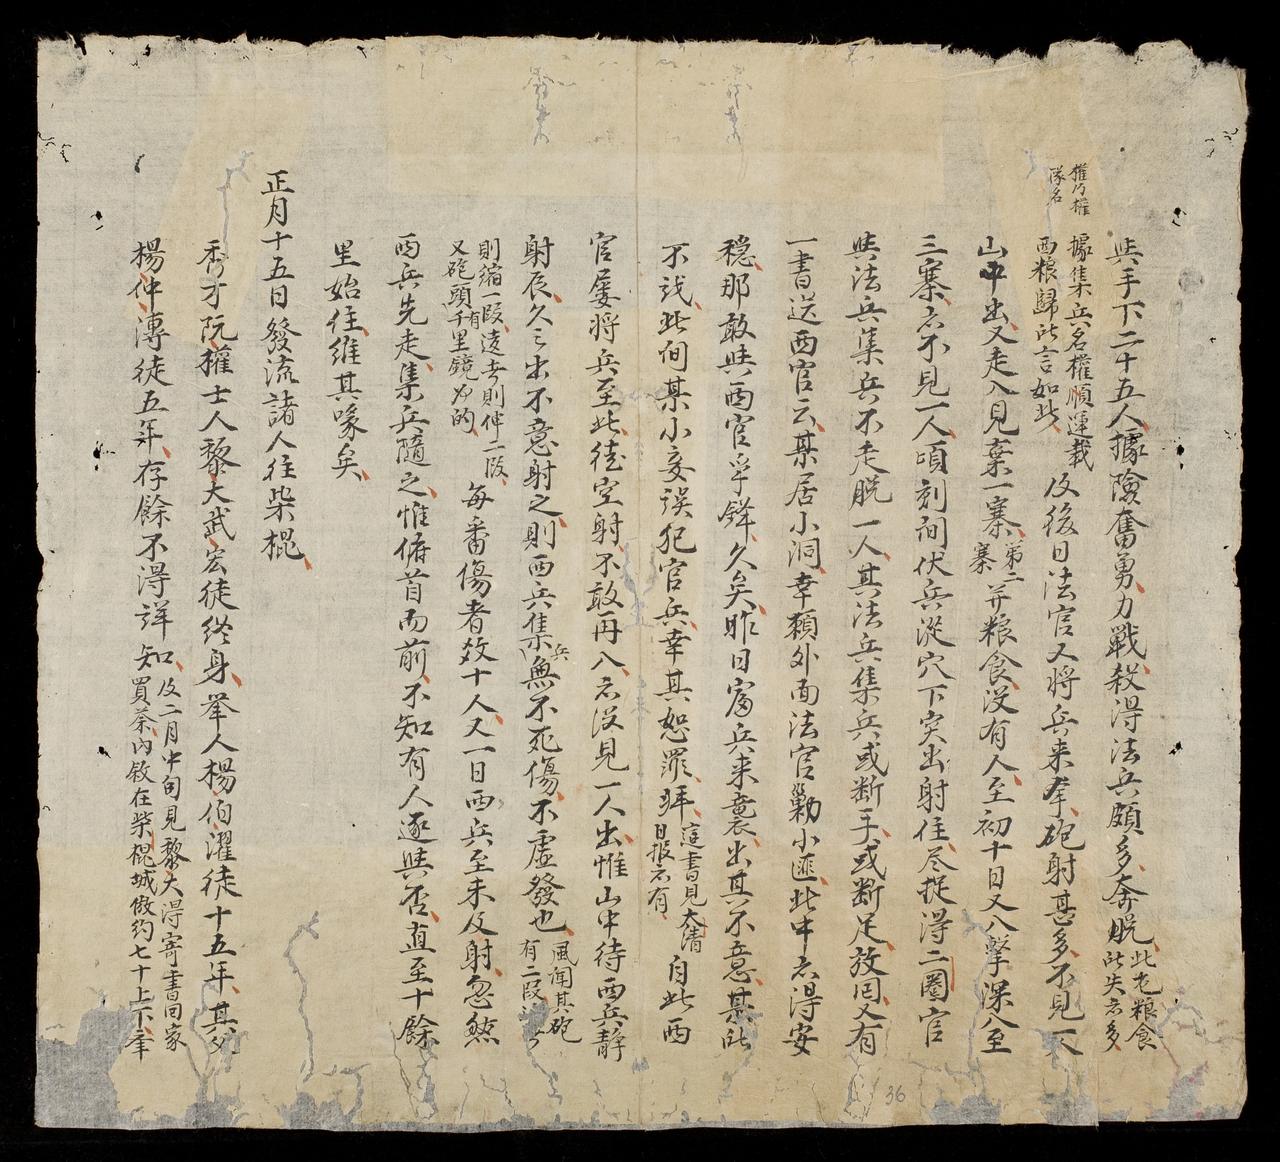 與手下二十五人據險奮勇力戰殺得法兵頗多奔脫此老粮食所失亦多
權乃權隊名
據集兵名權順運載西粮歸所言如此及後日法官又將兵来拿砲射甚多不見一人
山中出又走入見棄一寨第二寨并粮食沒有人至初十日又入擊深入至
三寨亦不見一人頃刻间伏兵從穴下突出射住尽捉得二圈官
與法兵集兵不走脫一人其法兵集兵或断手或断足放囘又有
一書送西官云某居小洞幸頼外面法官勦小匪此中亦得安
穏那敢與西官争鋒久矣昨日寡兵来襲出其不意某所
不識此间某小妾誤犯官兵幸其恕罪拜這書見大清日报亦有自此西
官屡将兵至此徒空射不敢再入亦没見一人出惟山中待西兵静
射辰久之出不意射之則西兵集兵無不死傷不虚發也風闻其砲有二段
則縮一段遠者則伸二段又砲頭有千里鏡为的每番傷者数十人又一日西兵至未及射忽然
西兵先走集兵隨之惟俯首而前不知有人逐與否直至十餘
里始住維其喙矣
正月十五日發流諸人往柴棍
秀才阮權士人黎大武宏徒終身举人楊伯濯徒十五年其父
楊仲溥徒五年存餘不得詳知及二月中旬見黎大得寄書囘家買茶內敘在柴棍城傲約七十上下牽
36